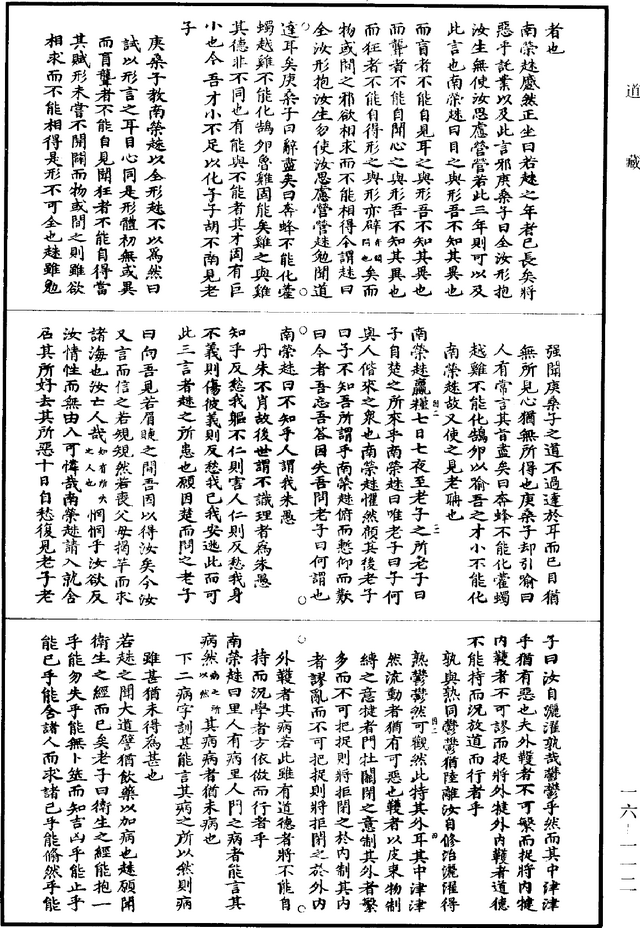 道藏
者也
南榮趎蹙然正坐曰若趎之年者已長矣將
惡乎託業以及此言邪庚桑子曰全汝形抱
汝生無使汝思慮營營若此三年則可以及
此言也南榮趎曰目之與形吾不知其異也
而盲者不能自見耳之與形吾不知其異也
而聾者不能自聞心之與形吾不知其異也
而狂者不能自得形之與形亦辟矣而
物或間之邪欲相求而不能相得今謂趎曰
全汝形抱汝生勿使汝思慮營營趎勉聞道
達耳矣庚桑子曰辭盡矣曰奔蜂不能化藿
蠋越雞不能化鵠卵魯雞固能矣雞之與雞
其德非不同也有能與不能者其才固有巨
小也今吾才小不足以化子子胡不南見老
子
庚桑子教南榮趎以全形趎不以為然曰
試以形言之耳目心同是形體初無或異
而盲聾者不能自見聞狂者不能自得當
其賦形未嘗不開闢而物或間之則雖欲
相求而不能相得是形不可全也趎雖勉
強聞庚桑子之道不過達於耳而已目猶
無所見心猶無所得也庚桑子却引喻曰
人有常言其言盡矣曰奔蜂不能化藿蠋
越雞不能化鵠卵以喻吾之才小不能化
南榮趎故又使之見老聃也
南榮趎贏糧七日七夜至老子之所老子曰
子自楚之所來乎南榮趎曰唯老子曰子何
與人偕來之衆也南榮趎懼然顧其後老子
曰子不知吾所謂乎南榮趎俯而慙仰而歎
曰今者吾忘吾答因失吾問老子曰何謂也
南榮趎曰不知乎人謂我朱愚
丹朱不肖故後世謂不識理者為朱愚
知乎反愁我軀不仁則害人仁則反愁我身
不義則傷彼義則反愁我已我安逃此而可
此三言者趎之所患也願因楚而問之老子
曰向吾見若眉睫之間吾因以得汝矣今汝
又言而信之若規規然若喪父母揭竿而求
諸海也汝亡人哉如有所亡之人也惘惘乎汝欲反
汝情性而無由入可憐哉南榮趎請入就舍
召其所好去其所惡十日自愁復見老子老
子曰汝自灑濯孰哉鬱鬱乎然而其中津津
乎猶有惡也夫外韄者不可繁而捉將內揵
內韄者不可謬而捉將外揵外內韄者道德
不能持而況放道而行者乎
孰與熟同鬱鬱猶陸離汝自修治灑濯得
熟鬱鬱然可觀然此特其外耳其中津津
然流動者猶有可惡也韄者以皮束物制
縛之意揵者門牡關閉之意制其外者繁
多而不可把捉則將拒閉之於內制其內
者謬亂而不可把捉則將拒閉之於外內
外韄者其病若此雖有道德者將不能自
持而況學者方依倣而行者乎
南榮趎曰里人有病里人問之病者能言其
病然病之所以然其病病者猶未病也
下二病字訓甚能言其病之所以然則病
雖甚猶未得為甚也
若趎之聞大道譬猶飲藥以加病也趎願聞
衛生之經而已矣老子曰衛生之經能抱一
乎能勿失乎能無卜筮而知吉凶乎能止乎
能已乎能舍諸人而求諸己乎能翛然乎能
一六—一一二